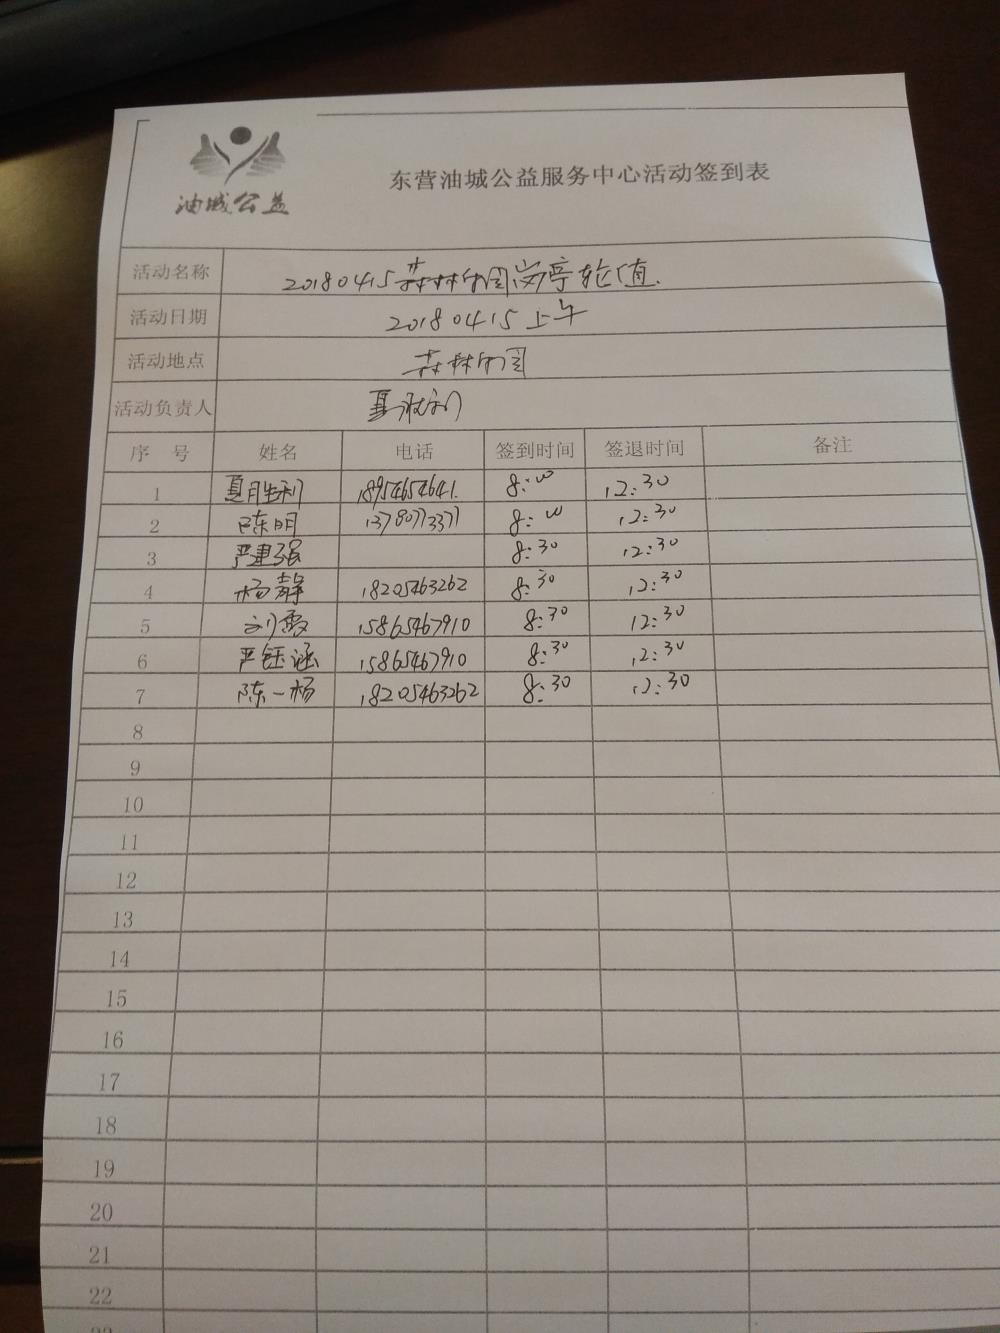 油城公益
东营油城公益服务中心活动签到表
活动名称 20180415森林公园岗亭轮值.
活动日期 20180415上午
活动地点 森林公园
活动负责人 夏
序 号 姓名 电话 签到时间 签退时间 备注
1 夏胜利 18954654641. 8:00 12:30
2 陈明 13780773377 8:00 12:30
3 严建强 8:30 12:30
4 杨静 18205463262 8:30 12:30
5 刘霞 15865467910 8:30 12:30
6 严钰涵 15865467910 8:30 12:30
7 陈一杨 18205463262 8:30 12:30
8
9
10
11
12
13
14
15
16
17
18
19
20
21
22
23